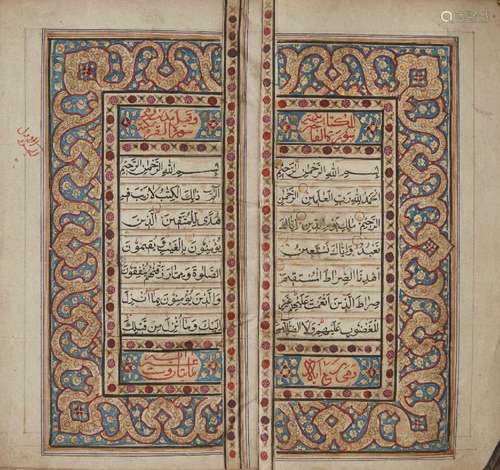 بِسْمِ اللهِ الرَّحْمٰنِ الرَّحِيْمِ
اَلْحَمْدُ لِلّٰهِ رَبِّ الْعٰلَمِيْنَ الرَّحْمٰنِ
الرَّحِيْمِ مٰلِكِ يَوْمِ الدِّيْنِ اِيَّاكَ
نَعْبُدُ وَاِيَّاكَ نَسْتَعِيْنُ
اِهْدِنَا الصِّرَاطَ الْمُسْتَقِيْمَ
صِرَاطَ الَّذِيْنَ اَنْعَمْتَ عَلَيْهِمْ غَيْرِ
الْمَغْضُوْبِ عَلَيْهِمْ وَلَا الضَّالِّيْنَ
سورة البقرة
بِسْمِ اللهِ الرَّحْمٰنِ الرَّحِيْمِ
الٓمّٓ ذٰلِكَ الْكِتٰبُ لَا رَيْبَ فِيْهِ
هُدًى لِّلْمُتَّقِيْنَ الَّذِيْنَ
يُؤْمِنُوْنَ بِالْغَيْبِ وَيُقِيْمُوْنَ
الصَّلٰوةَ وَمِمَّا رَزَقْنٰهُمْ يُنْفِقُوْنَ
وَالَّذِيْنَ يُؤْمِنُوْنَ بِمَا اُنْزِلَ
اِلَيْكَ وَمَا اُنْزِلَ مِنْ قَبْلِكَ